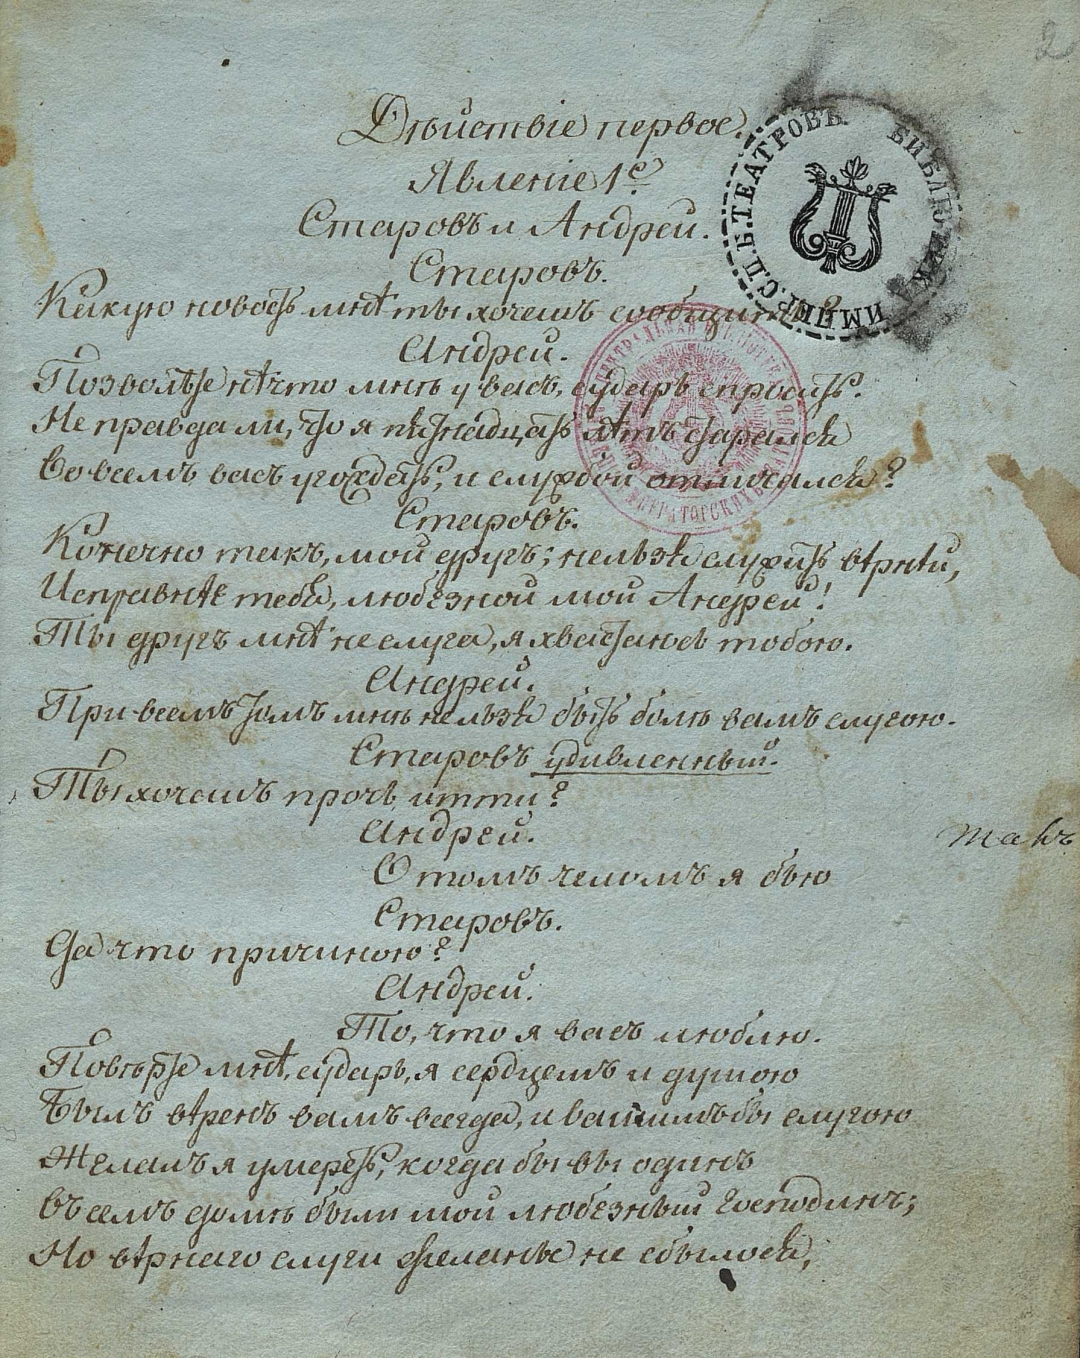 2
Дѣйствіе первое.
Явленіе 1е
Старовъ и Андрей.
Старовъ.
Какую новость мнѣ ты хочешь сообщить?
Андрей.
Позвольте нѣчто мнѣ у васъ, сударь спросить.
Не правда ли, что я пятнадцать лѣтъ старался
Во всемъ васъ угождать, и службой отличался?
Старовъ.
Конечно такъ, мой другъ; нельзя служить вѣрнѣй,
Исправнѣе тебя, любезной мой Андрей!
Ты другъ мнѣ не слуга, я хвастаюсь тобою.
Андрей.
При всемъ томъ мнѣ нельзя быть болѣ вамъ слугою.
Старовъ удивленный.
Ты хочешь прочь итти?
Андрей.
такъ
О томъ челомъ я бью
Старовъ.
Да что причиною?
Андрей.
То, что я васъ люблю.
Повѣрьте мнѣ, сударь, я сердцемъ и душою
Былъ вѣренъ вамъ всегда, и вашимъ бы слугою
Желалъ я умереть, когда бы вы одинъ
Въ семъ домѣ были мой любезный Господинъ;
Но вѣрнаго слуги желанье не сбылося,
БИБЛІОТЕКА ИМПЕР. С.П.Б. ТЕАТРОВЪ
ЦЕНТРАЛЬНАЯ БИБЛИОТЕКА